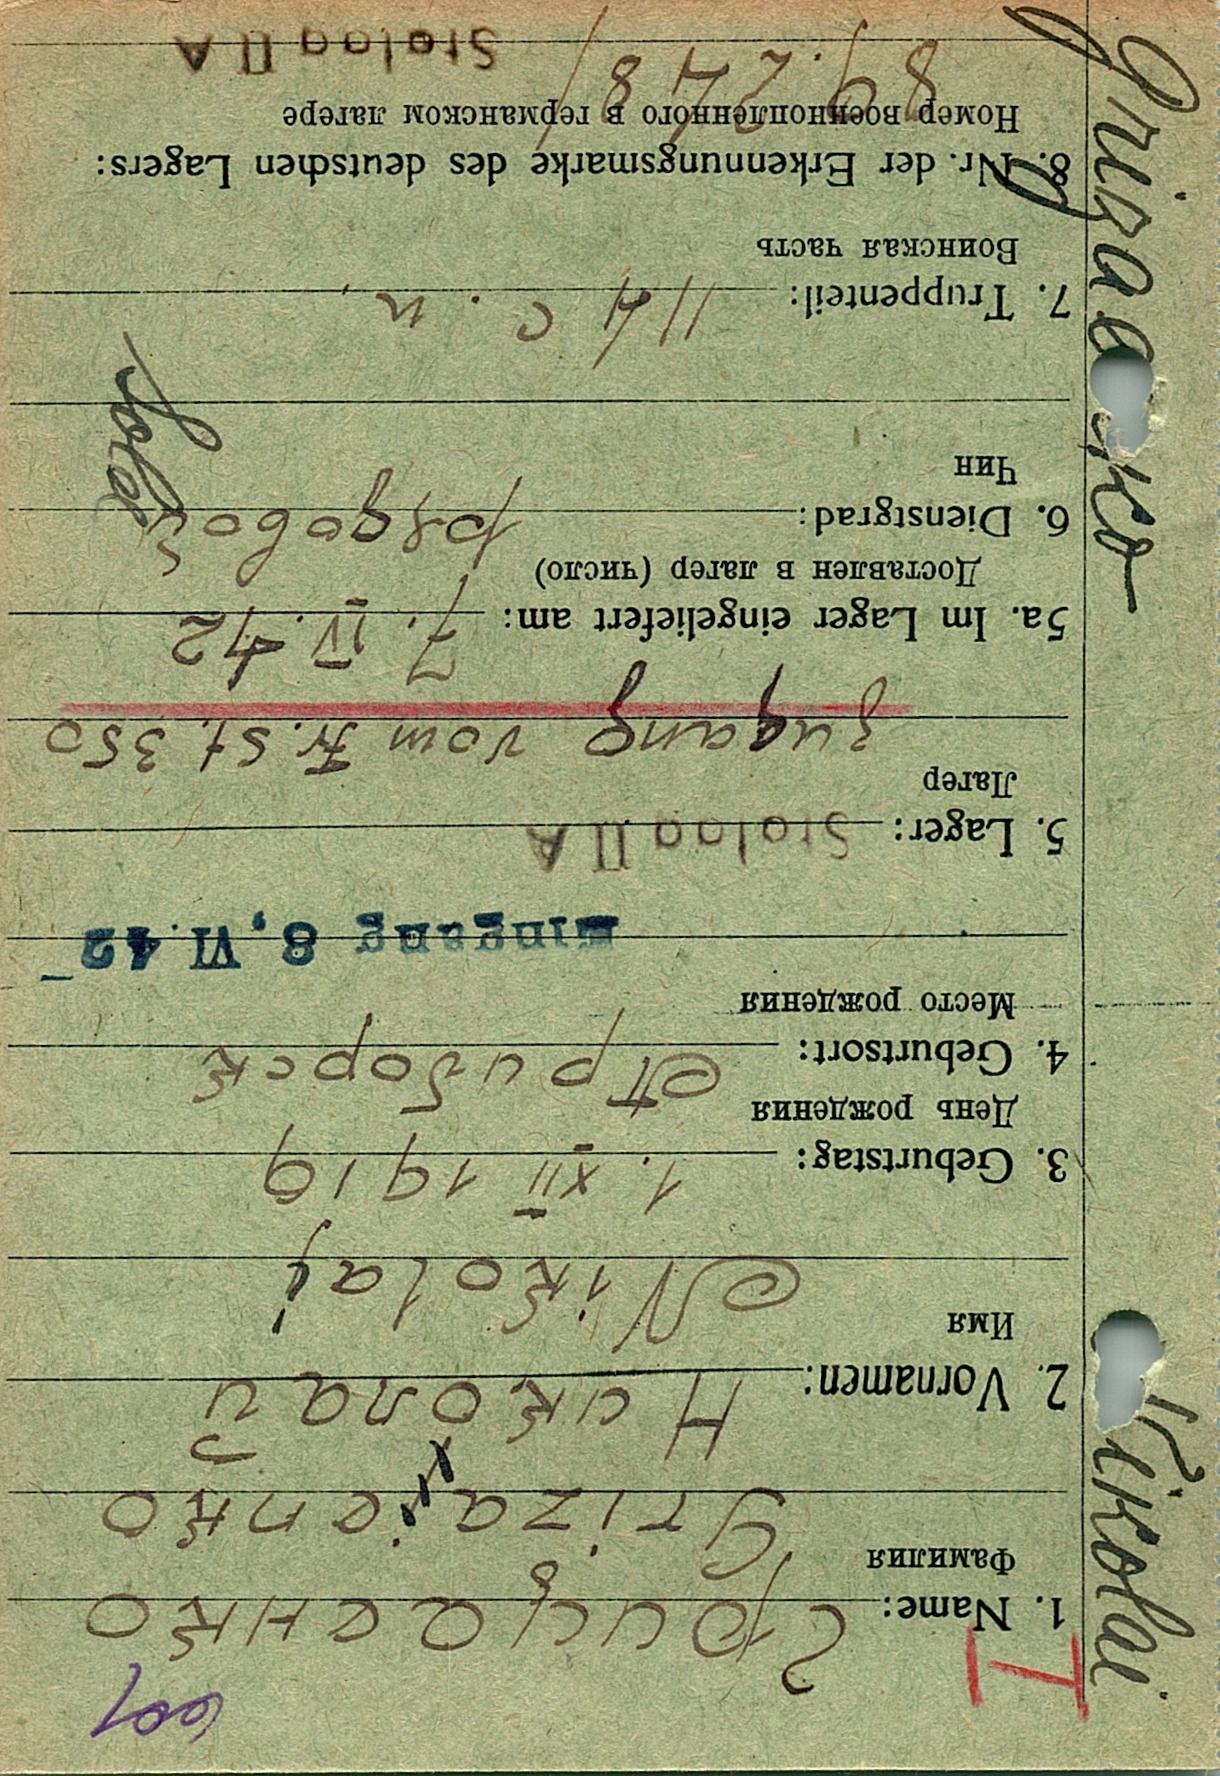 1. Name: Грицаенко
Фамилия
Grizajenko
2. Vornamen: Николай
Имя
Nikolaj
3. Geburtstag: 1. XII 1919
День рождения
4. Geburtsort: Приборск
Место рождения
Eingang 8. VI. 42
5. Lager: Stalag II A
Лагер
Zugang vom Fr. St. 350
5a. Im Lager eingeliefert am: 7. IV. 42
Доставлен в лагер (число)
6. Dienstgrad: рядовой Sold
Чин
7. Truppenteil: 114 с. п
Воинская часть
8. Nr. der Erkennungsmarke des deutschen Lagers:
Номер военнопленного в германском лагере
89.248/
Stalag II A
Nikolai